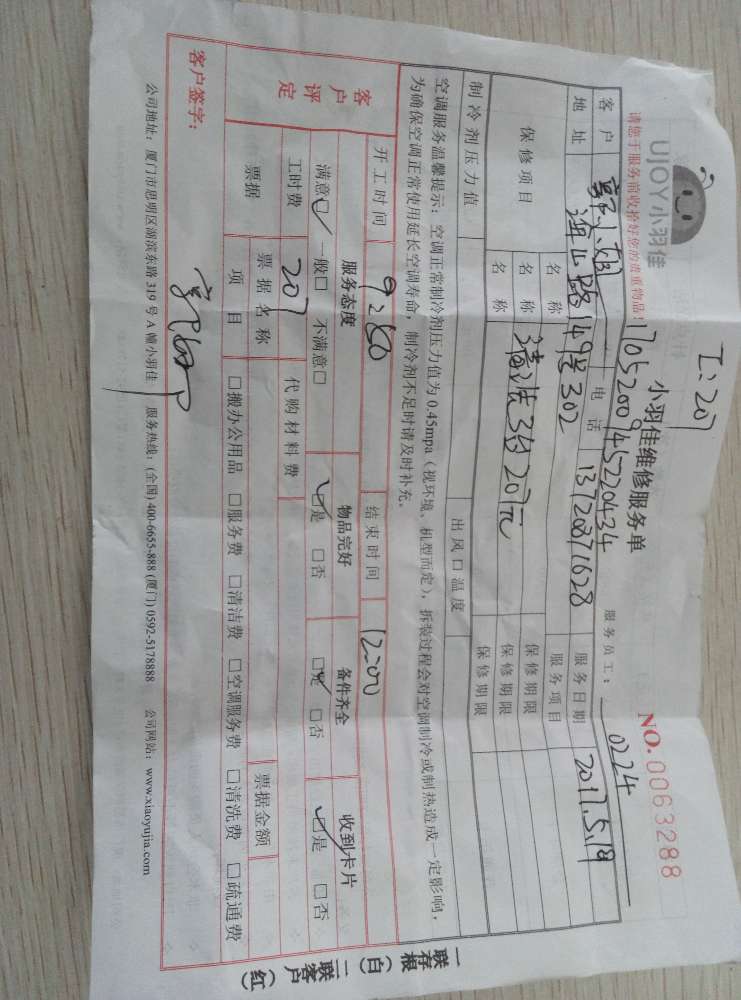 工:207
UJOY小羽佳
小羽佳维修服务单
NO.0063288
1705200945220434
服务员工: 0224
请您于服务前收拾好您的贵重物品!
客户 小姐 电话 13720871628 服务日期 2017.5.19
地址 海山路149号302 服务项目
保修项目 名称 清洗3台207元 保修期限
名称 保修期限
名称 保修期限
制冷剂压力值 出风口温度
空调服务温馨提示:空调正常制冷剂压力值为0.45mpa(视环境、机型而定),拆装过程会对空调制冷或制热造成一定影响,
为确保空调正常使用延长空调寿命,制冷剂不足时请及时补充。
开工时间 9:50 结束时间 12:00
客户评定
服务态度 物品完好 备件齐全 收到卡片
满意☑ 一般□ 不满意□ ☑是 □否 ☑是 □否 ☑是 □否
工时费 207 代购材料费
票据 票据名称 票据金额
项目 □搬办公用品 □服务费 □清洁费 □空调服务费 □清洗费 □疏通费
客户签字:
公司地址:厦门市思明区湖滨东路319号A幢小羽佳 服务热线:(全国)400-6655-888 (厦门)0592-5178888 公司网站:www.xiaoyujia.com
一联存根(白)二联客户(红)